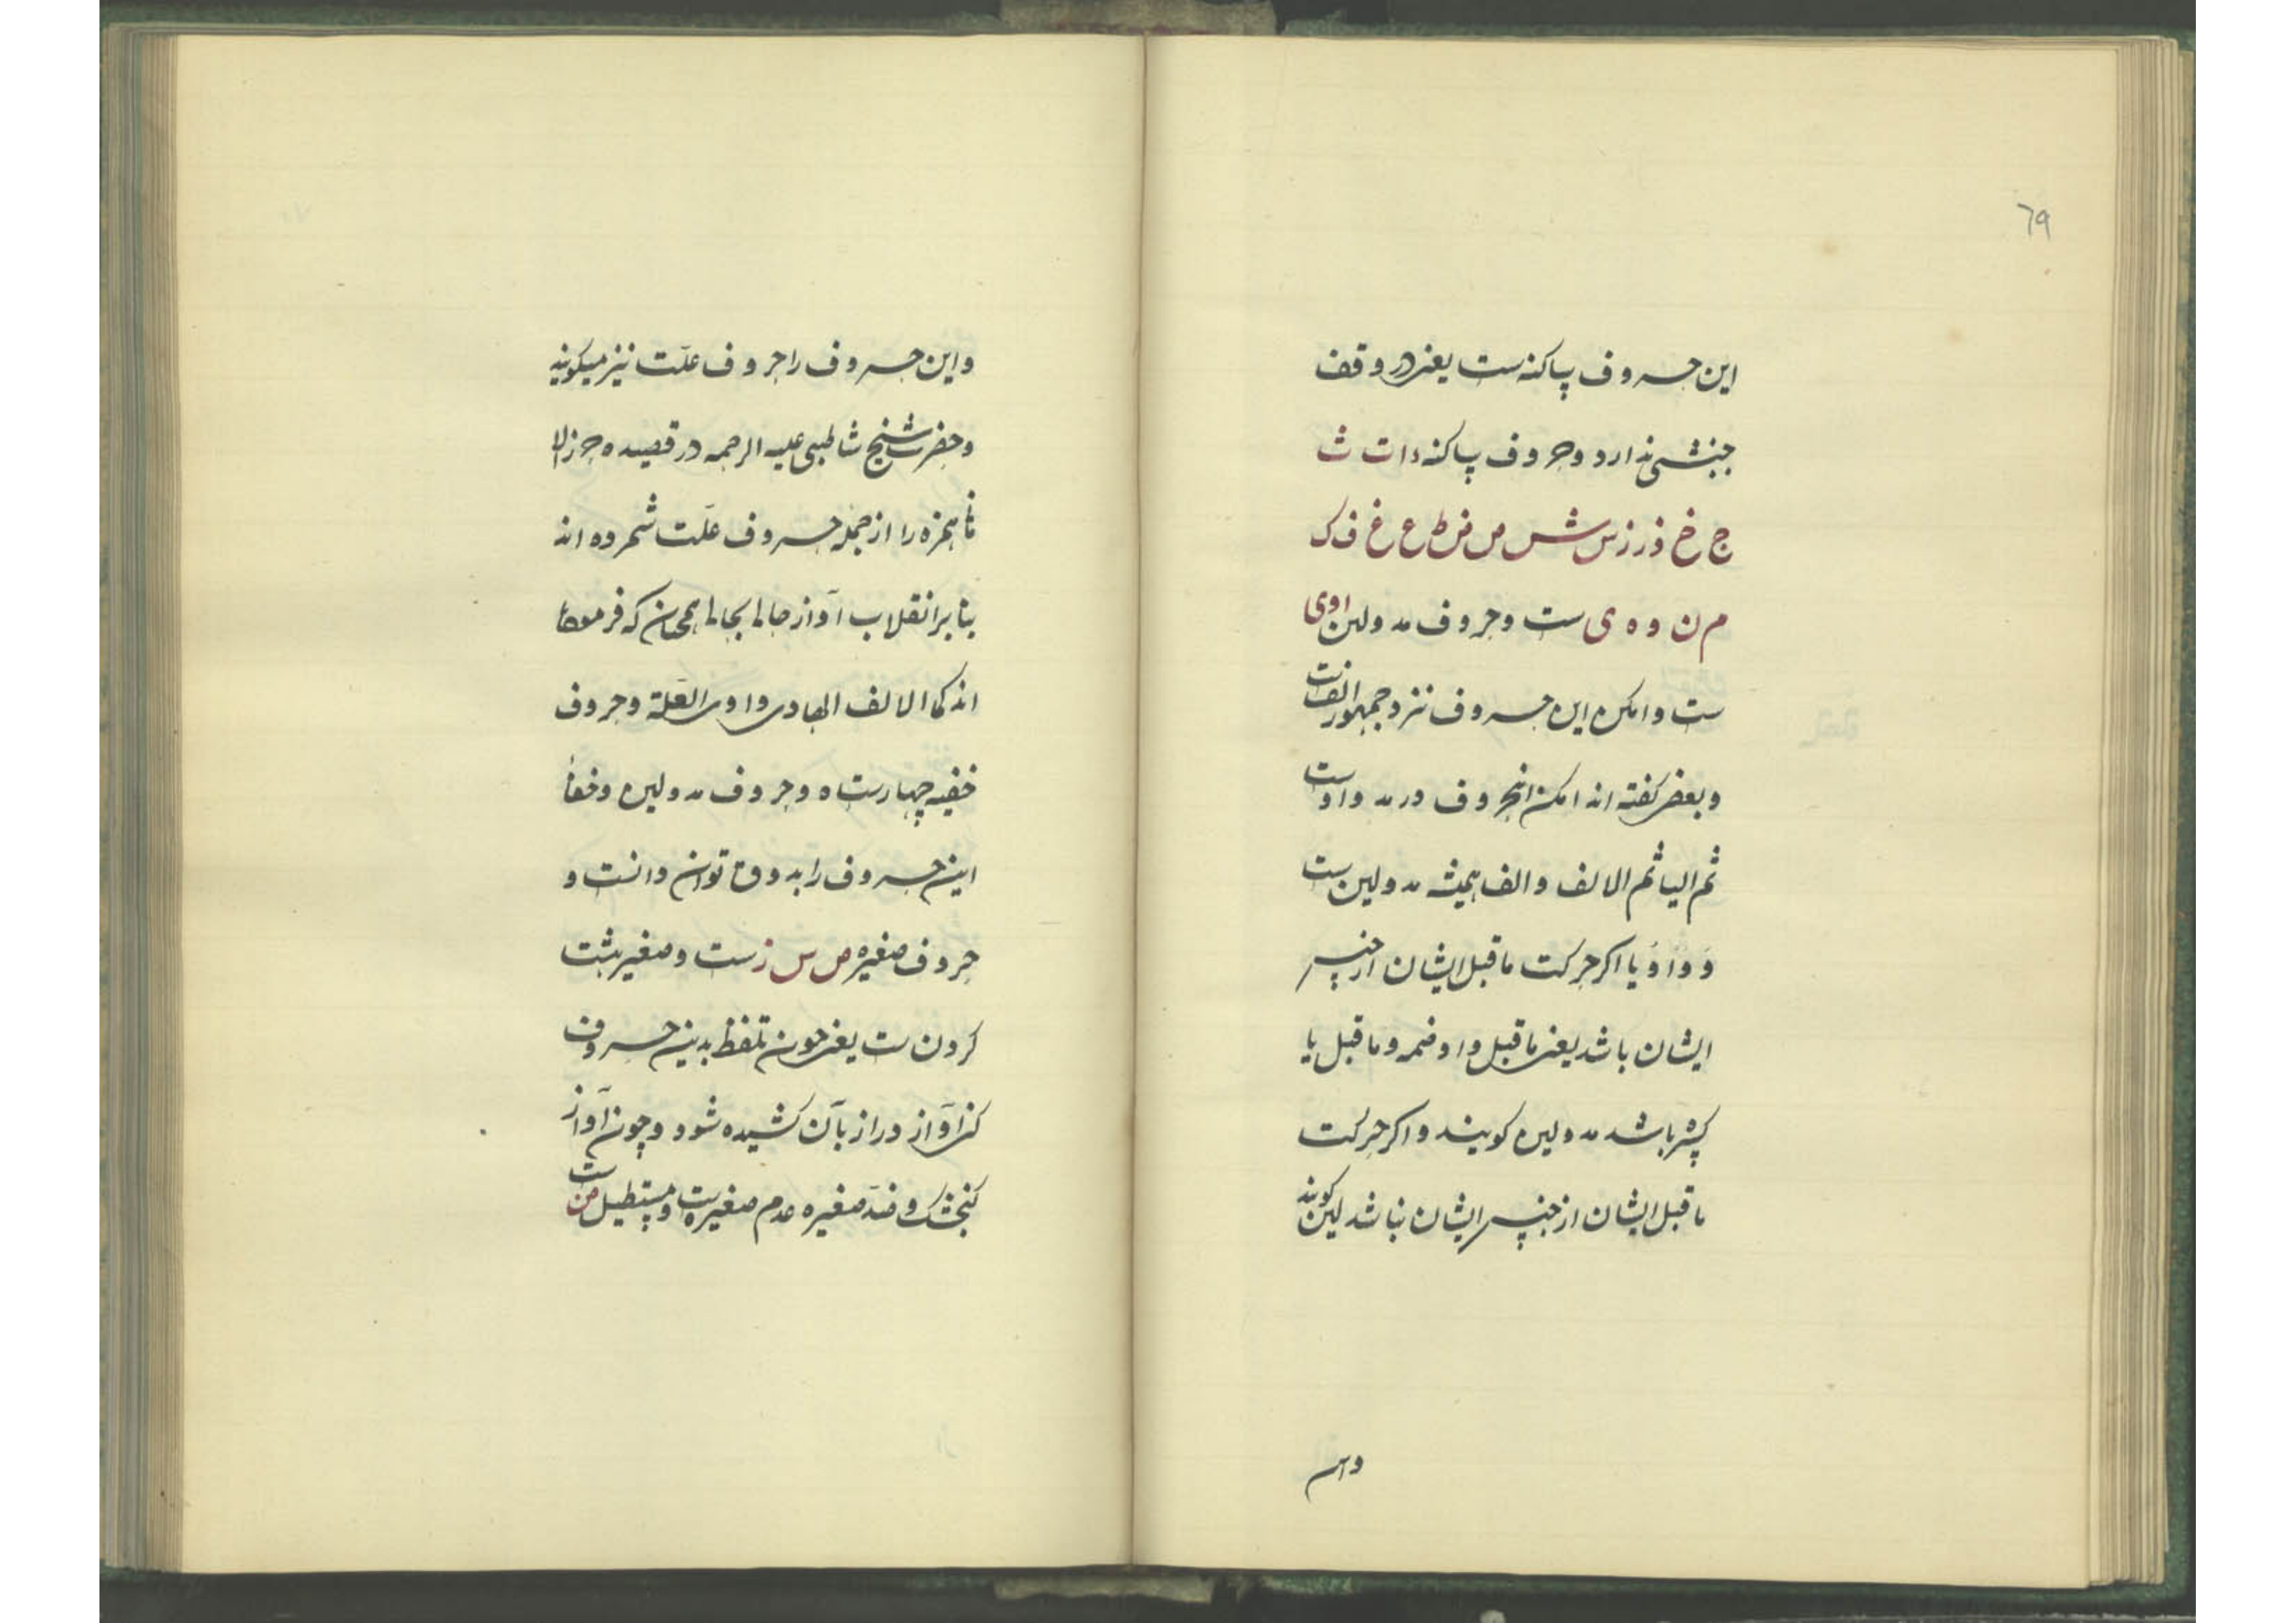 ٦٩
این حروف ساکنه ست یعنی در وقف
جنبشی ندارد و حروف ساکنه ا ت ث
ج خ ذ ر ز س ش ص ض ط ع غ ف ک
م ن و ه ی ست و حروف مد و لین ا و ی
ست وامکن این حروف نزد جمهور الف است
و بعضی کفته اند امکن این حروف در مد واوست
ثم الیا ثم الالف و الف همیشه مد و لین ست
و واو و یا اکر حرکت ماقبل ایشان از جنس
ایشان باشد یعنی ماقبل واو ضمه و ماقبل یا
کسره باشد مد و لین کویند و اکر حرکت
ماقبل ایشان از جنس ایشان نباشد لین کویند
و این
و این حروف را حروف علّت نیز میکویند
و حضرت شیخ شاطبی علیه الرحمه در قصیده حرز الا
همزه را از جمله حروف علّت شمرده اند
بنا بر انقلاب آواز حالا بحالا همچنان که فرموده
اند کما الالف الهاوی و اوی العلة و حروف
خفیه چهارست ه و حروف مد و لین و خفأ
این حروف را بذوق توان دانست و
حروف صغیره ص س ز ست و صغیر
کردن ست یعنی چون تلفظ بدین حروف
کنی آواز دراز بآن کشیده شود و چون آواز
کنجشک و ضدّ صغیره عدم صغیرست و مستطیل ض ست